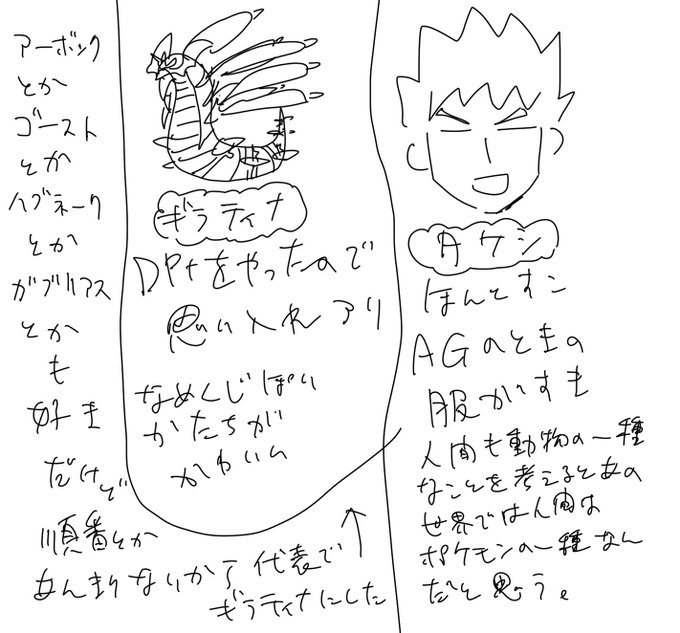 アーボック
とか
ゴースト
とか
ハブネーク
とか
ガブリアス
とか
も
好き
だけど
順番とか
あんまりないから代表で
ギラティナにした
ギラティナ
DPtをやったので
思い入れアリ
なめくじぽい
かたちが
かわいい
タケシ
ほんとすこ
AGのときの
服がすき
人間も動物の一種
なことを考えるとあの
世界では人間は
ポケモンの一種なん
だと思う。